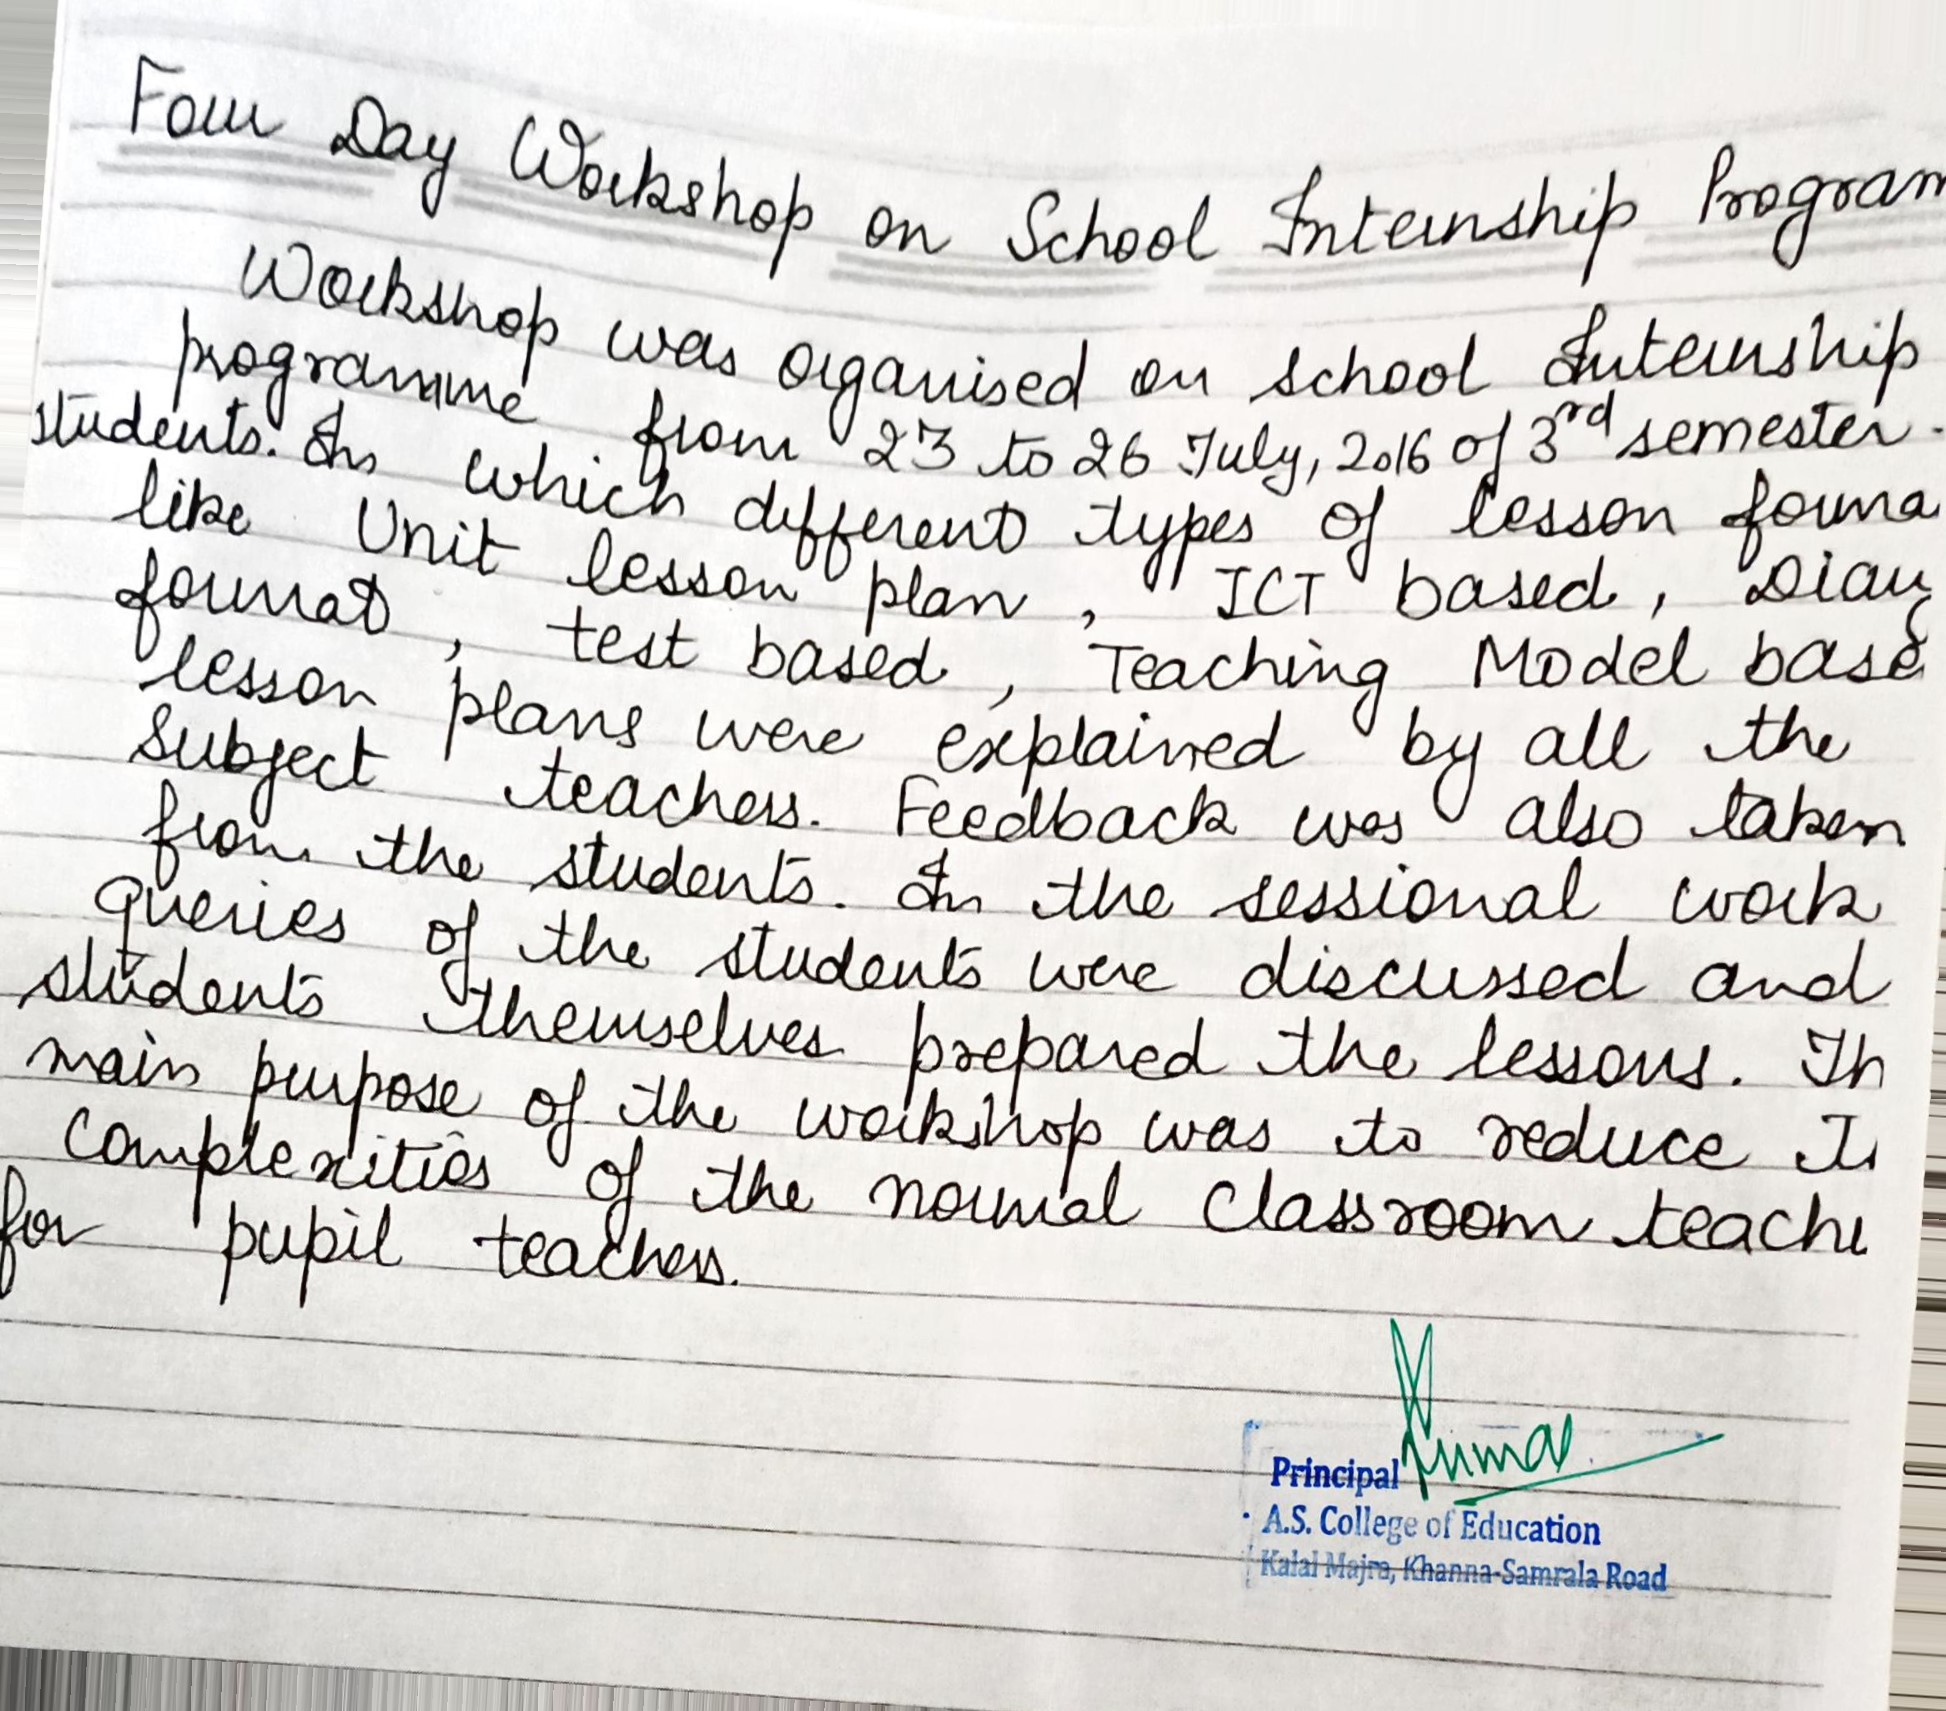 Four Day Workshop on School Internship Program
Workshop was organised on school Internship
programme from 23 to 26 July, 2016 of 3rd semester.
students. In which different types of lesson forma
like Unit lesson plan, ICT based, Diary
format, test based, Teaching Model base
lesson plans were explained by all the
subject teachers. Feedback was also taken
from the students. In the sessional work
queries of the students were discussed and
students themselves prepared the lessons. Th
main purpose of the workshop was to reduce
complexities of the normal classroom teachi
for pupil teachers.
Kumar
Principal
A.S. College of Education
Kalal Majra, Khanna-Samrala Road